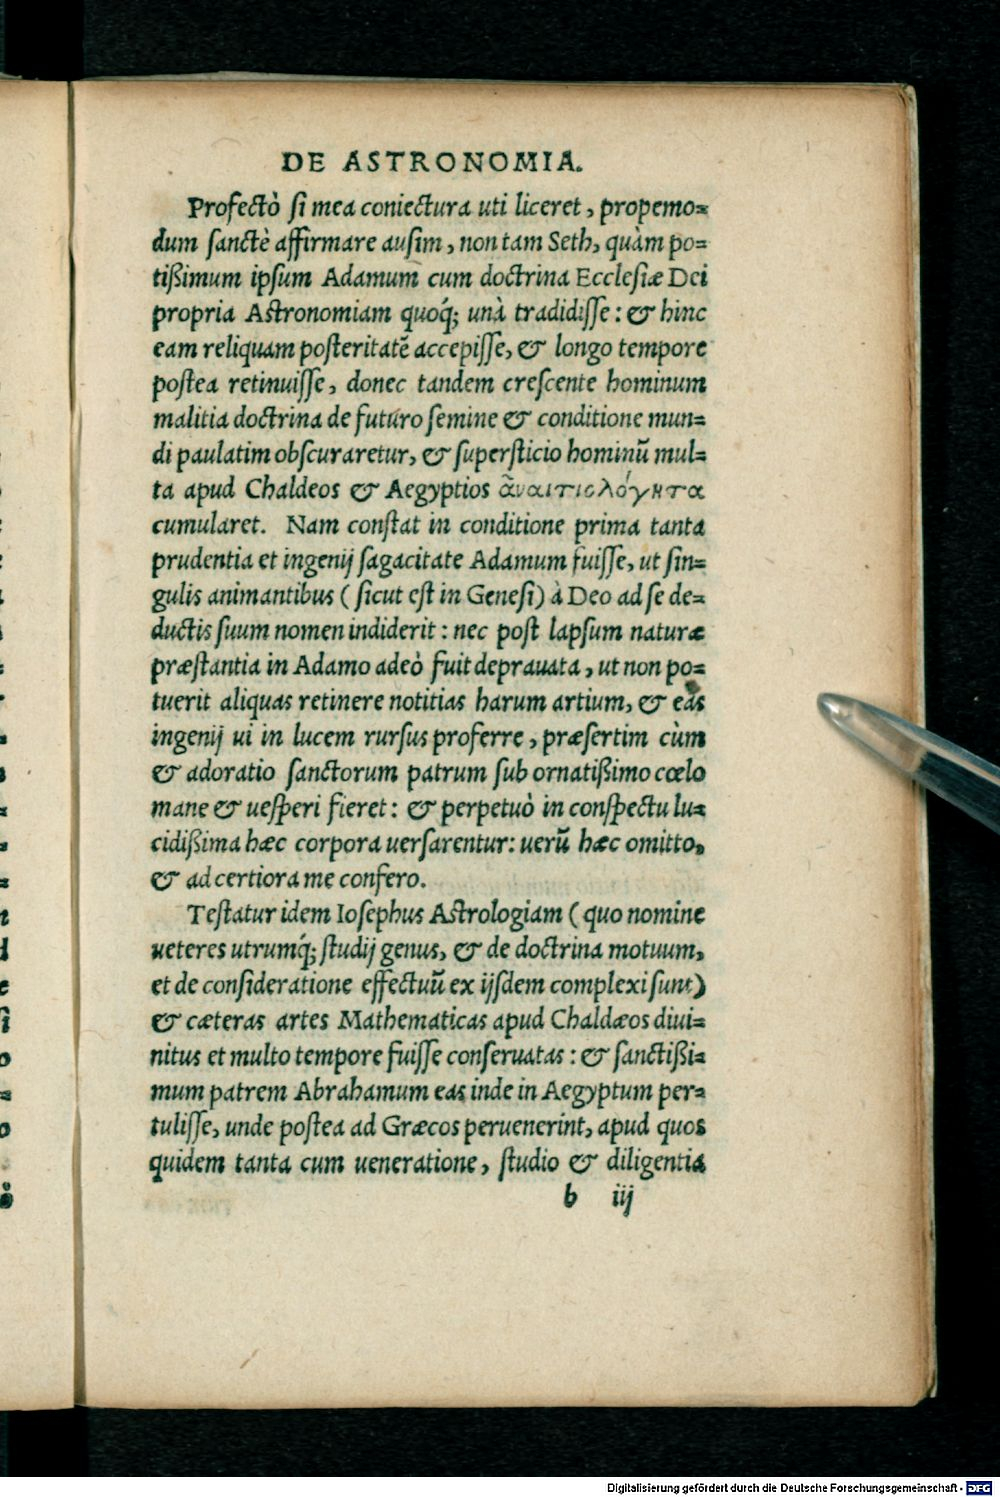 DE ASTRONOMIA.
Profectò ſi mea coniectura uti liceret, propemo=
dum ſanctè affirmare auſim, non tam Seth, quàm po=
tißimum ipſum Adamum cum doctrina Eccleſiæ Dei
propria Aſtronomiam quoq́; unà tradidiſſe: & hinc
eam reliquam poſteritatẽ accepiſſe, & longo tempore
poſtea retinuiſſe, donec tandem creſcente hominum
malitia doctrina de futuro ſemine & conditione mun=
di paulatim obſcuraretur, & ſuperſticio hominũ mul=
ta apud Chaldeos & Aegyptios ἀναιτιολόγητα
cumularet. Nam conſtat in conditione prima tanta
prudentia et ingenij ſagacitate Adamum fuiſſe, ut ſin=
gulis animantibus (ſicut eſt in Geneſi) à Deo ad ſe de=
ductis ſuum nomen indiderit: nec poſt lapſum naturæ
præſtantia in Adamo adeò fuit deprauata, ut non po=
tuerit aliquas retinere notitias harum artium, & eas
ingenij ui in lucem rurſus proferre, præſertim cùm
& adoratio ſanctorum patrum ſub ornatißimo cœlo
mane & ueſperi fieret: & perpetuò in conſpectu lu=
cidißima hæc corpora uerſarentur: uerũ hæc omitto,
& ad certiora me confero.
Teſtatur idem Ioſephus Aſtrologiam (quo nomine
ueteres utrumq́; ſtudij genus, & de doctrina motuum,
et de conſideratione effectuũ ex ijſdem complexi ſunt)
& cæteras artes Mathematicas apud Chaldæos diui=
nitus et multo tempore fuiſſe conſeruatas: & ſanctißi=
mum patrem Abrahamum eas inde in Aegyptum per=
tuliſſe, unde poſtea ad Græcos peruenerint, apud quos
quidem tanta cum ueneratione, ſtudio & diligentia
b iij
Digitalisierung gefördert durch die Deutsche Forschungsgemeinschaft - DFG